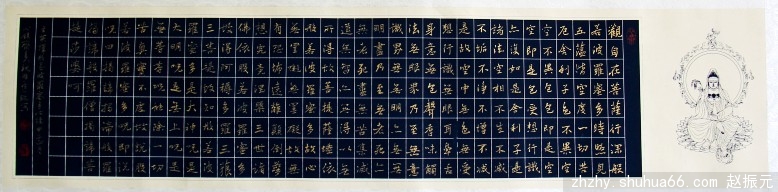 觀自在菩薩行深般
若波羅蜜多時照見
五蘊皆空度一切苦
厄舍利子色不異空
空不異色色即是空
空即是色受想行識
亦復如是舍利子是
諸法空相不生不滅
不垢不淨不增不減
是故空中無色無受
想行識無眼耳鼻舌
身意無色聲香味觸
法無眼界乃至無意
識界無無明亦無無
明盡乃至無老死亦
無老死盡無苦集滅
道無智亦無得以無
所得故菩提薩埵依
般若波羅蜜多故心
無罣礙無罣礙故無
有恐怖遠離顛倒夢
想究竟涅槃三世諸
佛依般若波羅蜜多
故得阿耨多羅三藐
三菩提故知般若波
羅蜜多是大神呪是
大明呪是無上呪是
無等等呪能除一切
苦真實不虛故說般
若波羅蜜多呪即說
呪曰揭諦揭諦波羅
揭諦波羅僧揭諦菩
提娑婆呵
zhzhy.shuhua66.com 赵振元